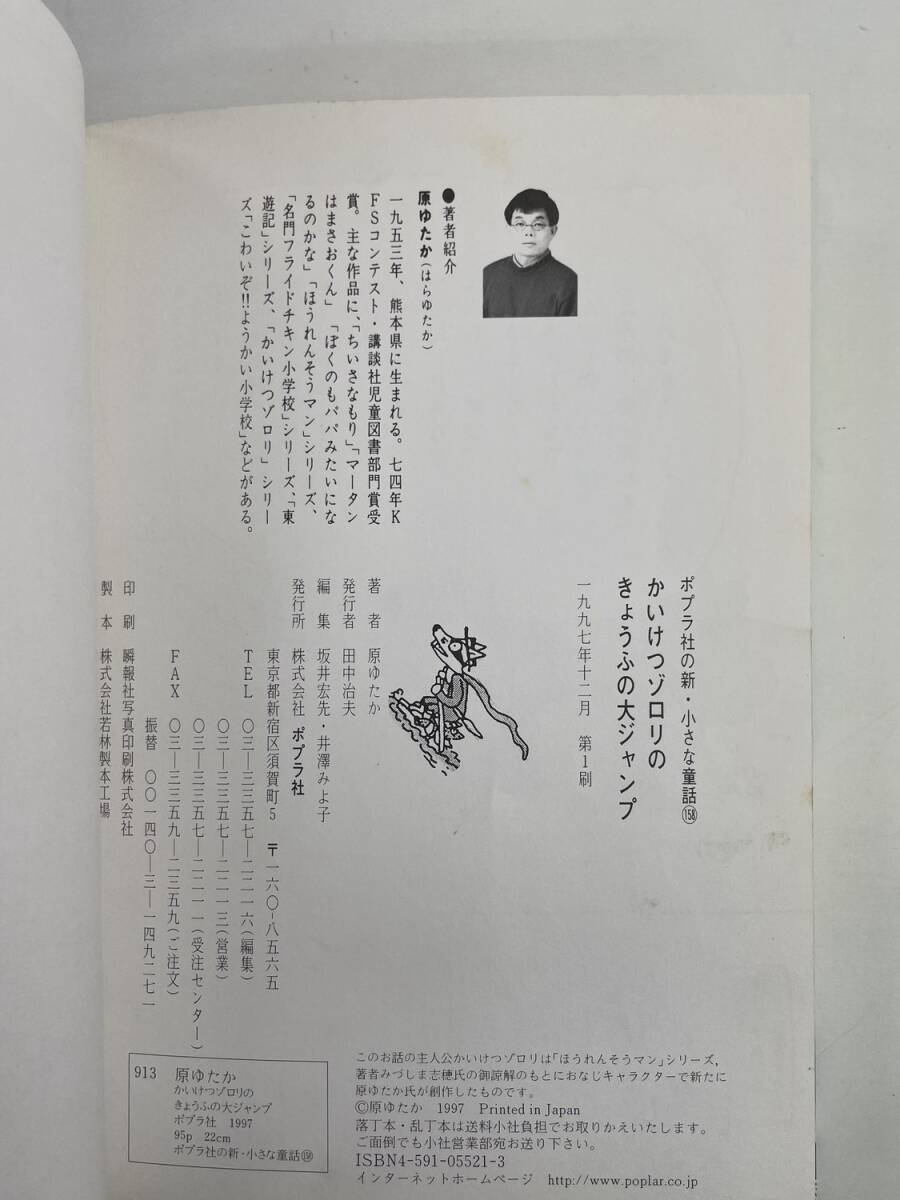 ●著者紹介
原ゆたか(はらゆたか)
一九五三年、熊本県に生まれる。七四年K
FSコンテスト・講談社児童図書部門賞受
賞。主な作品に、「ちいさなもり」「マータン
はまさおくん」「ぼくのもパパみたいにな
るのかな」「ほうれんそうマン」シリーズ、
「名門フライドチキン小学校」シリーズ、「東
遊記」シリーズ、「かいけつゾロリ」シリー
ズ「こわいぞ!!ようかい小学校」などがある。
ポプラ社の新・小さな童話 158
かいけつゾロリの
きょうふの大ジャンプ
一九九七年十二月 第1刷
著者 原ゆたか
発行者 田中治夫
編集 坂井宏先・井澤みよ子
発行所 株式会社 ポプラ社
東京都新宿区須賀町5 〒一六〇-八五六五
TEL 〇三―三三五七―二二一六(編集)
〇三―三三五七―二二一三(営業)
〇三―三三五七―二二一一(受注センター)
FAX 〇三―三三五九―二三五九(ご注文)
振替 〇〇一四〇―三―一四九二七一
印刷 瞬報社写真印刷株式会社
製本 株式会社若林製本工場
913 原ゆたか
かいけつゾロリの
きょうふの大ジャンプ
ポプラ社 1997
95p 22cm
ポプラ社の新・小さな童話
このお話の主人公かいけつゾロリは「ほうれんそうマン」シリーズ,
著者みづしま志穂氏の御諒解のもとにおなじキャラクターで新たに
原ゆたか氏が創作したものです。
©原ゆたか 1997 Printed in Japan
落丁本・乱丁本は送料小社負担でお取りかえいたします。
ご面倒でも小社営業部宛お送り下さい。
ISBN4-591-05521-3
インターネットホームページ http://www.poplar.co.jp